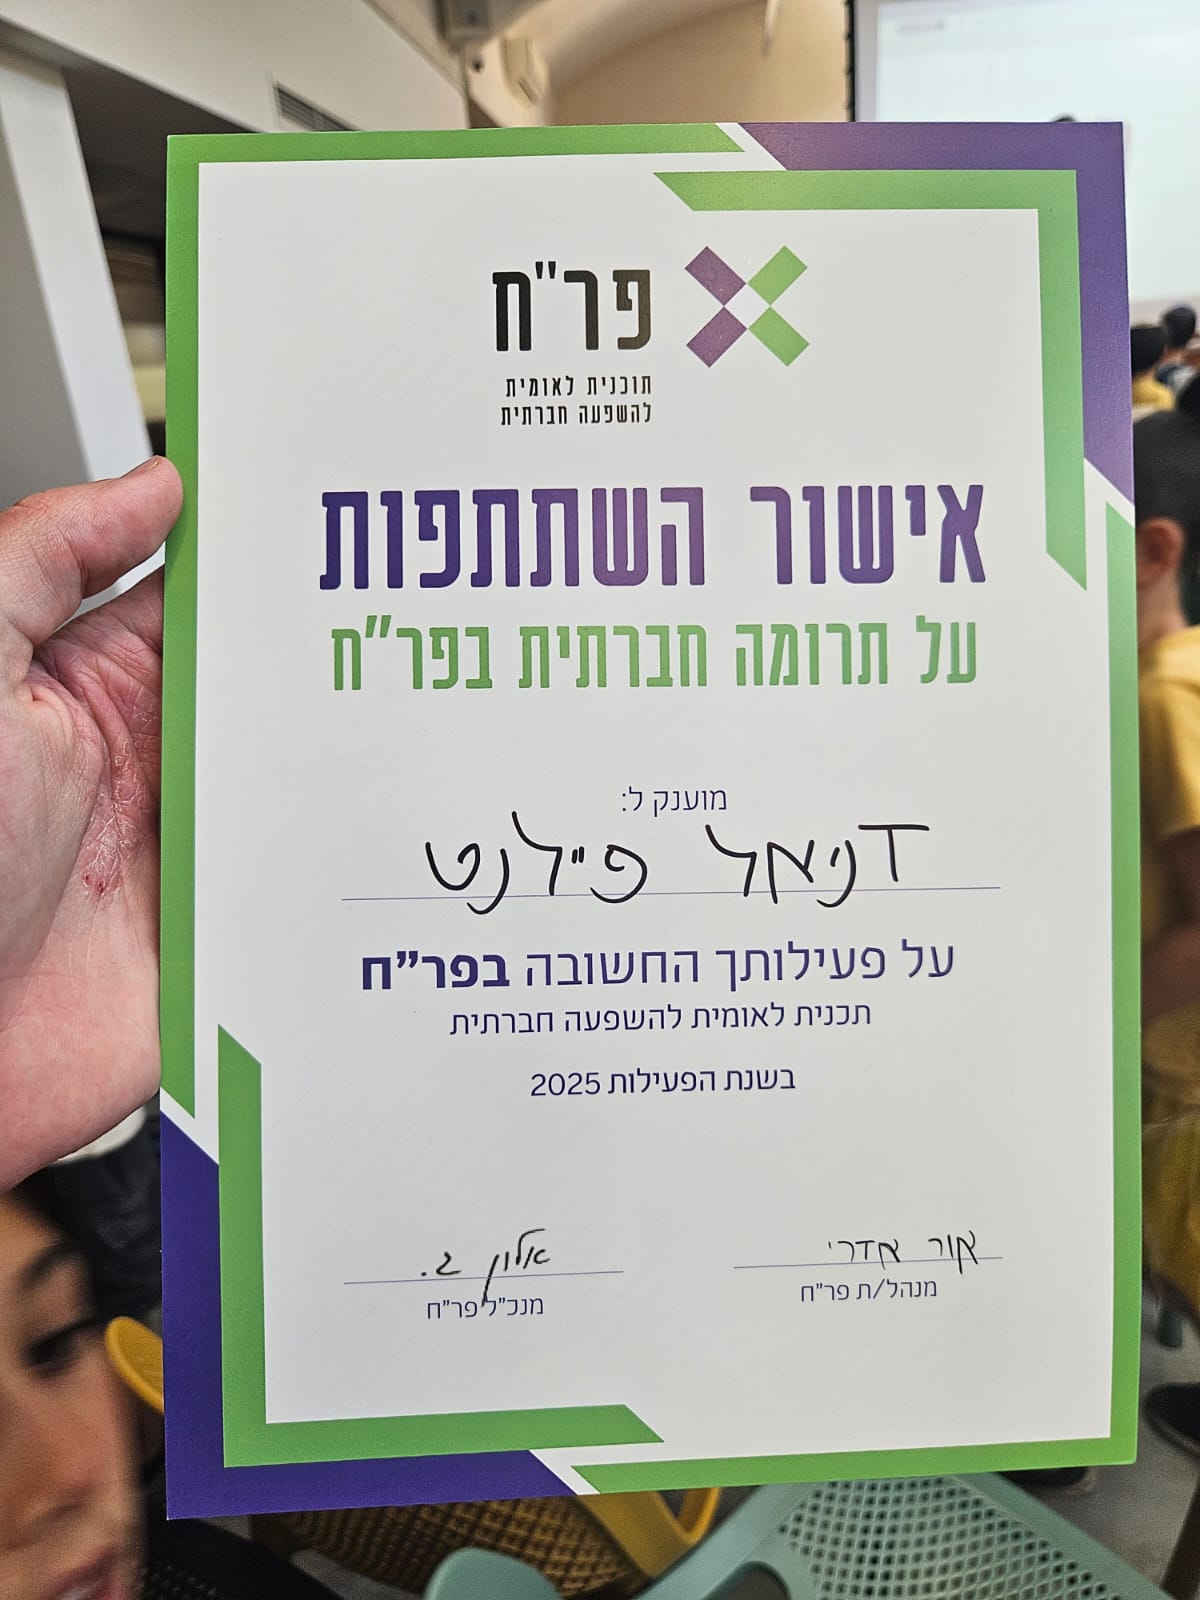 פר"ח
תוכנית לאומית
להשפעה חברתית
אישור השתתפות
על תרומה חברתית בפר"ח
מוענק ל:
דניאל פיילנט
על פעילותך החשובה בפר"ח
תכנית לאומית להשפעה חברתית
בשנת הפעילות 2025
אור אדרי
מנהל/ת פר"ח
אלון ג.
מנכ"ל פר"ח